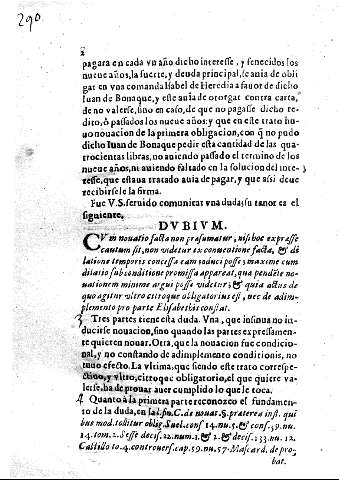 290
2
pagara en cada vn año dicho interesse, y fenecidos los
nueue años, la suerte, y deuda principal, se auia de obli
gar en vna comanda Isabel de Heredia a fauor de dicho
Iuan de Bonaque, y este auia de otorgar contra carta,
de no valerse, sino en caso, de que no pagasse dicho re-
dito, ò passados los nueue años: y que en este trato hu-
uo nouacion de la primera obligacion, con q̃ no pudo
dicho Iuan de Bonaque pedir esta cantidad de las qua
trocientas libras, no auiendo passado el termino de los
nueue años, ni auiendo faltado en la solucion del inte-
resse, que estaua tratado auia de pagar, y que assi deue
recibirsele la firma.
Fue V.S. seruido comunicar vna duda; su tanor es el
siguiente.
DVBIVM.
CVm nouatio facta non præsumatur, nisi hoc expresse
cautum sit, non videtur ex conuentione facta, & di
latione temporis concessa eam induci posse; maxime cum
dilatio sub conditione promissa appareat, qua pendẽte no-
uationem minime argui posse videtur; & quia actus de
quo agitur vltro citroque obligatorius est, nec de adim-
plemento pro parte Elisabethis constat.
3 Tres partes tiene esta duda. Vna, que insinua no in-
ducirse nouacion, sino quando las partes expressamen-
te quieren nouar. Otra, que la nouacion fue condicio-
nal, y no constando de adimplemento conditionis, no
tuuo efecto. La vltima, que siendo este trato correspe-
ctiuo, y vltro, citroque obligatorio, el que quiere va-
lerse, ha de prouar auer cumplido lo que le toca.
4 Quanto à la primera parte reconozco el fundamen-
to de la duda, en la l. fin. C. de nouat. §. præterea inst. qui
bus mod. tollitur oblig. Suel. cons. 14. nu. 5. & cons. 59. nu.
14. tom. 2. Sesse decis. 22. num. 1. & 2. & decis. 233. nu. 12.
Castillo to. 4. controuers. cap. 59. nu. 57. Mascard. de pro-
bat.